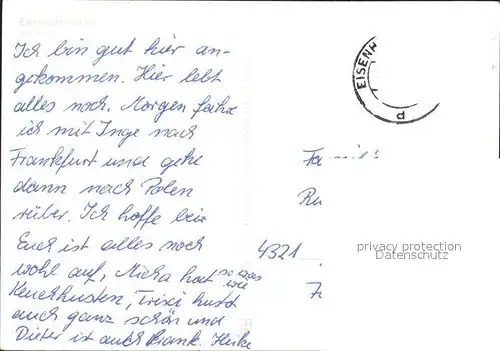 Ich bin gut hier an-
gekommen. Hier lebt
alles noch. Morgen fahre
ich mit Inge nach
Frankfurt und gehe
dann nach Polen
rüber. Ich hoffe bei
Euch ist alles noch
wohl auf, Micha hat so etwas wie
Keuchhusten, Trixi hustet
auch ganz schön und
Dieter ist auch krank. Heike
EISENH
d
4321
privacy protection
Datenschutz